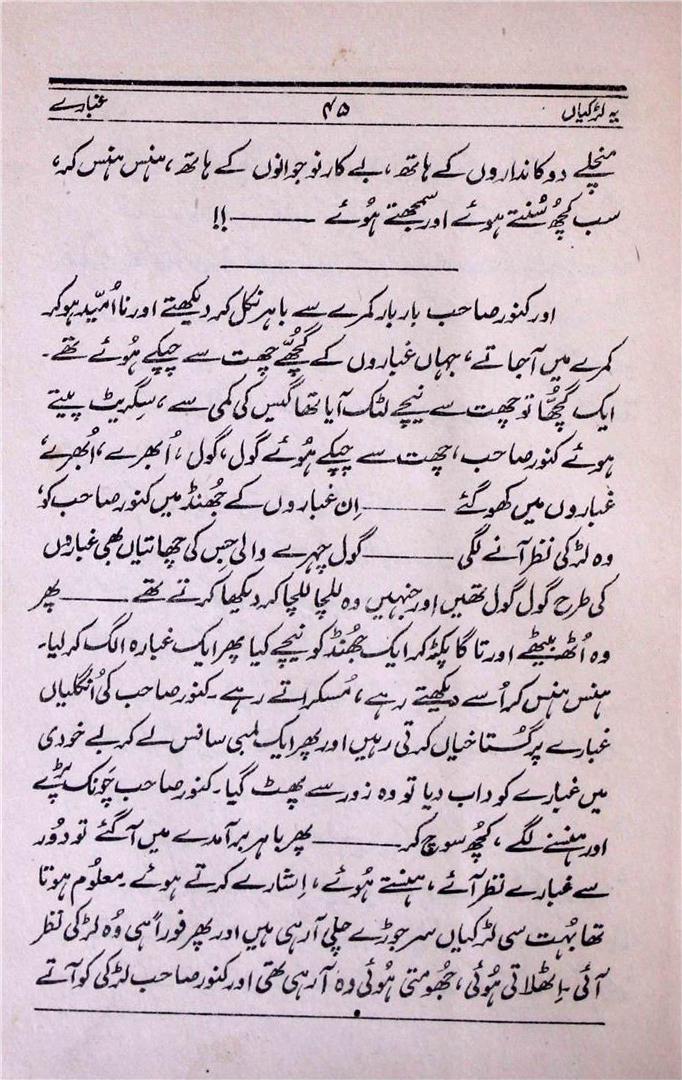 یہ لڑکیاں ۴۵ غبارے
منچلے دوکانداروں کے ہاتھ، بے کار نوجوانوں کے ہاتھ، ہنس ہنس کر،
سب کچھ سُنتے ہوئے اور سمجھتے ہُوئے ——!!
اور کنور صاحب بار بار کمرے سے باہر نکل کر دیکھتے اور نا اُمّید ہو کر
کمرے میں آجاتے، جہاں غباروں کے گچھّے چھت سے چپکے ہُوئے تھے۔
ایک گچھّا تو چھت سے نیچے لٹک آیا تھا گیس کی کمی سے، سگریٹ پیتے
ہوئے کنور صاحب، چھت سے چپکے ہُوئے گول، گول، اُبھرے، اُبھرے،
غباروں میں کھو گئے ——— اِن غباروں کے جُھنڈ میں کنور صاحب کو،
وہ لڑکی نظر آنے لگی ——— گول چہرے والی جس کی چھاتیاں بھی غباروں
کی طرح گول گول تھیں اور جنہیں وہ للچا للچا کر دیکھا کرتے تھے —— پھر
وہ اُٹھ بیٹھے اور تاگا پکڑ کر ایک جُھنڈ کو نیچے کیا پھر ایک غبارہ الگ کر لیا۔
ہنس ہنس کر اُسے دیکھتے رہے، مُسکراتے رہے۔ کنور صاحب کی اُنگلیاں
غبارے پر گُستاخیاں کرتی رہیں اور پھر ایک لمبی سانس لے کر بے خودی
میں غبارے کو داب دیا تو وہ زور سے پھٹ گیا۔ کنور صاحب چَونک پڑے
اور ہنسنے لگے، کچھ سوچ کر ——— پھر باہر برآمدے میں آگئے تو دُور
سے غبارے نظر آئے، ہنستے ہُوئے، اِشارے کرتے ہوئے۔ معلُوم ہوتا
تھا بُہت سی لڑکیاں سر جوڑے چلی آرہی ہیں اور پھر فوراً ہی وُہ لڑکی نظر
آئی۔ اِٹھلاتی ہُوئی، جُھومتی ہُوئی وہ آرہی تھی اور کنور صاحب لڑکی کو آتے